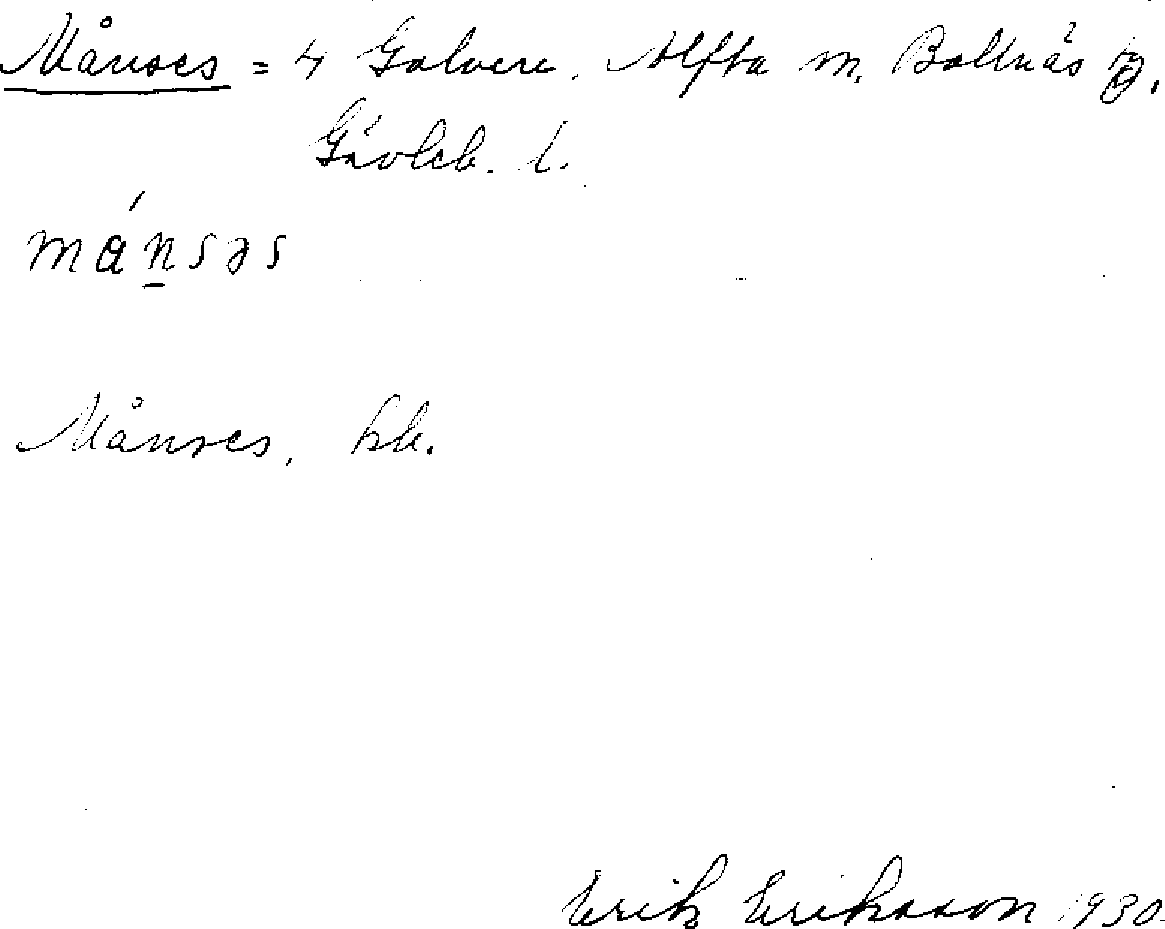 Månses = 4 Galvere, Alfta sn. Bollnäs tg.
Gävleb. l.
mánsəs
Månses, hb.
Erik Eriksson 1930